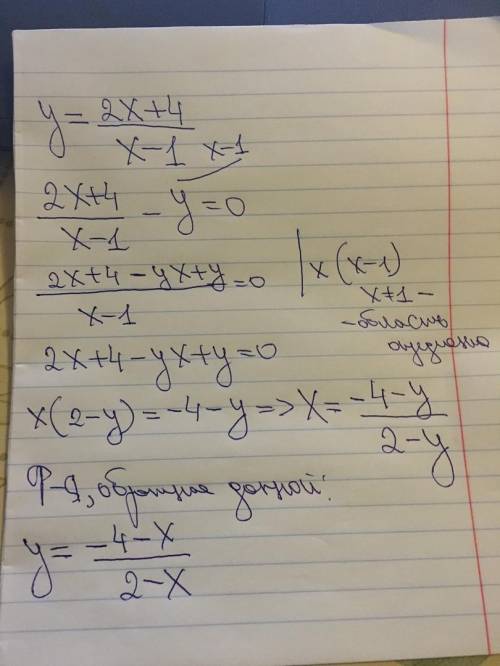 y = (2x+4)/(x-1)
x-1
(2x+4)/(x-1) - y = 0
(2x+4-yx+y)/(x-1) = 0 | x (x-1)
x≠1 -
- область
2x+4-yx+y=0
x(2-y) = -4-y => x = (-4-y)/(2-y)
Ф-я, обратная данной:
y = (-4-x)/(2-x)